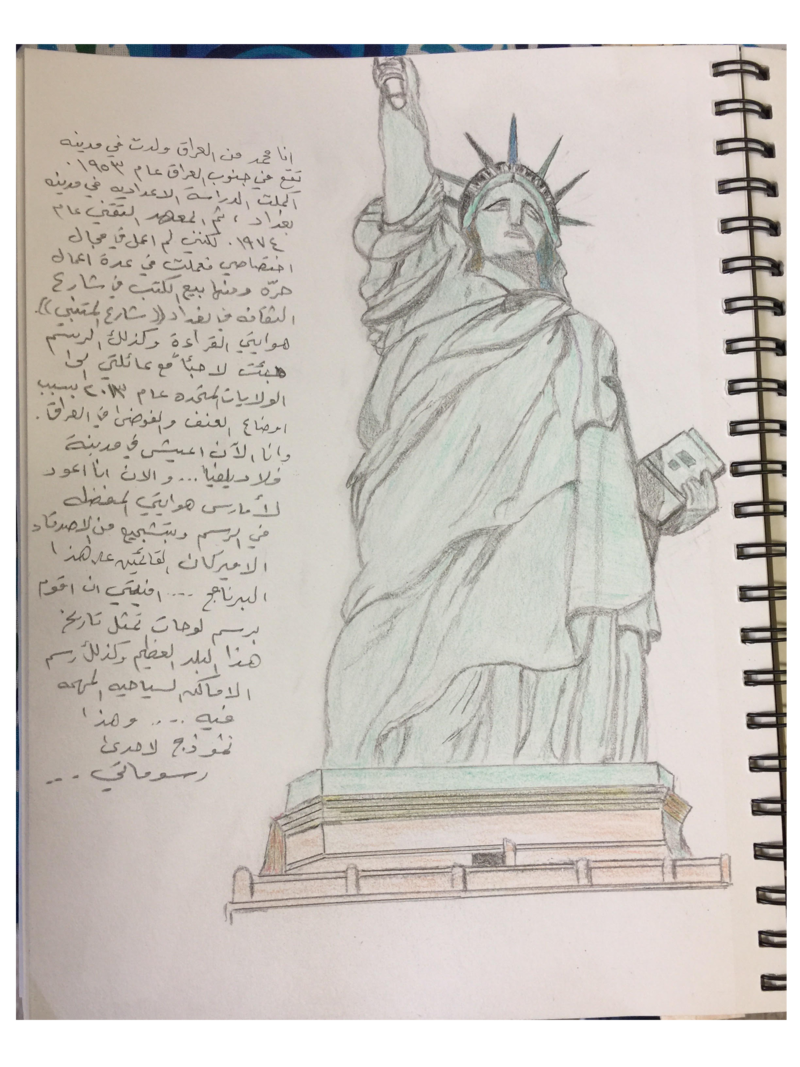 انا محمد من العراق ولدت في مدينه
تقع في جنوب العراق عام ١٩٥٣.
اكملت الدراسة الاعداديه في مدينه
بغداد ، ثم المعهد التقني عام
١٩٧٤. لكنني لم اعمل في مجال
اختصاصي فعملت في عدة اعمال
حرّه ومنها بيع الكتب في شارع
الثقافه في بغداد ((شارع المتنبي)).
هوايتي القراءة وكذلك الرسم
جئت لاجئاً مع عائلتي الى
الولايات المتحده عام بسبب
اوضاع العنف والفوضى في العراق.
وانا الآن اعيش في مدينة
فلاديلفيا ... و الان انا اعود
لأمارس هوايتي المفضله
في الرسم وبتشجيع من الاصدقاء
الامريكان القائمين على هذا
البرنامج .... ان اقوم
برسم لوحات تمثل تاريخ
هذا البلد العظيم وكذلك رسم
الاماكن السياحيه المهمه
فيه .... وهذا
نموذج لاحدى
رسوماتي ...